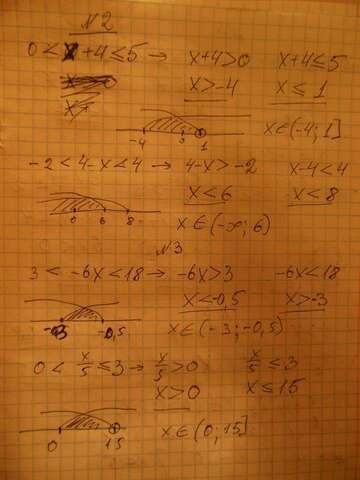 N2
0 < x +4 ≤ 5 → x+4>0 x+4 ≤ 5
x > -4 x ≤ 1
-4 1 x ∈ (-4; 1]
-2 < 4-x < 4 → 4-x > -2 x-4 < 4
x < 6 x < 8
0 6 8 x ∈ (-∞; 6)
N3
3 < -6x < 18 → -6x > 3 -6x < 18
x < -0,5 x > -3
-3 -0,5 x ∈ (-3; -0,5)
0 < x/5 ≤ 3 → x/5 > 0 x/5 ≤ 3
x > 0 x ≤ 15
0 15 x ∈ (0; 15]